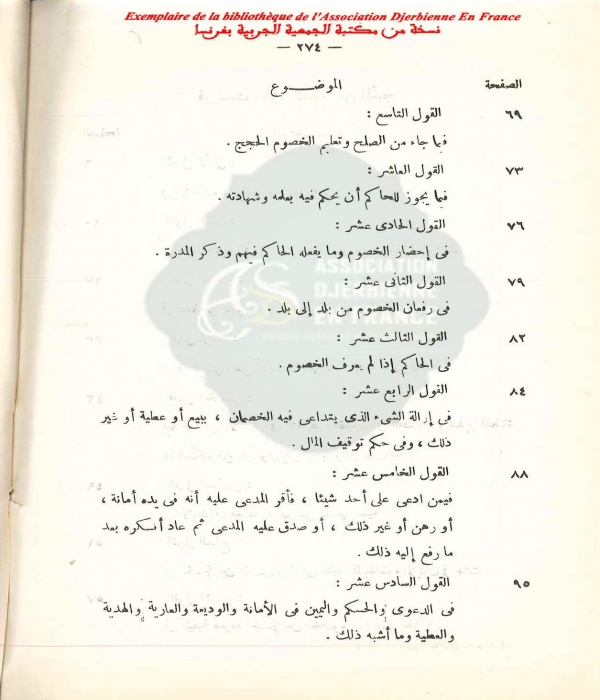 Exemplaire de la bibliothèque de l'Association Djerbienne En France
نسخة من مكتبة الجمعية الجربية بفرنسا
— ٢٧٤ —
الموضــوع الصفحة
القول التاسع : ٦٩
فيما جاء من الصلح وتعليم الخصوم الحجج .
القول العاشر : ٧٣
فيما يجوز للحاكم أن يحكم فيه بعلمه وشهادته .
القول الحادى عشر : ٧٦
فى إحضار الخصوم وما يفعله الحاكم فيهم وذكر المدرة .
القول الثانى عشر : ٧٩
فى رفعان الخصوم من بلد إلى بلد .
القول الثالث عشر : ٨٢
فى الحاكم إذا لم يعرف الخصوم .
القول الرابع عشر : ٨٤
فى إزالة الشىء الذى يتداعى فيه الخصمان ، ببيع أو عطية أو غير
ذلك ، وفى حكم توقيف المال .
القول الخامس عشر : ٨٨
فيمن ادعى على أحد شيئا ، فأقر المدعى عليه أنه فى يده أمانة ،
أو رهن أو غير ذلك ، أو صدق عليه المدعى ثم عاد أنكره بعد
ما رفع إليه ذلك .
القول السادس عشر : ٩٥
فى الدعوى والحكم واليمين فى الأمانة والوديعة والعارية والهدية
والعطية وما أشبه ذلك .
ASSOCIATION
DJERBIENNE
EN FRANCE